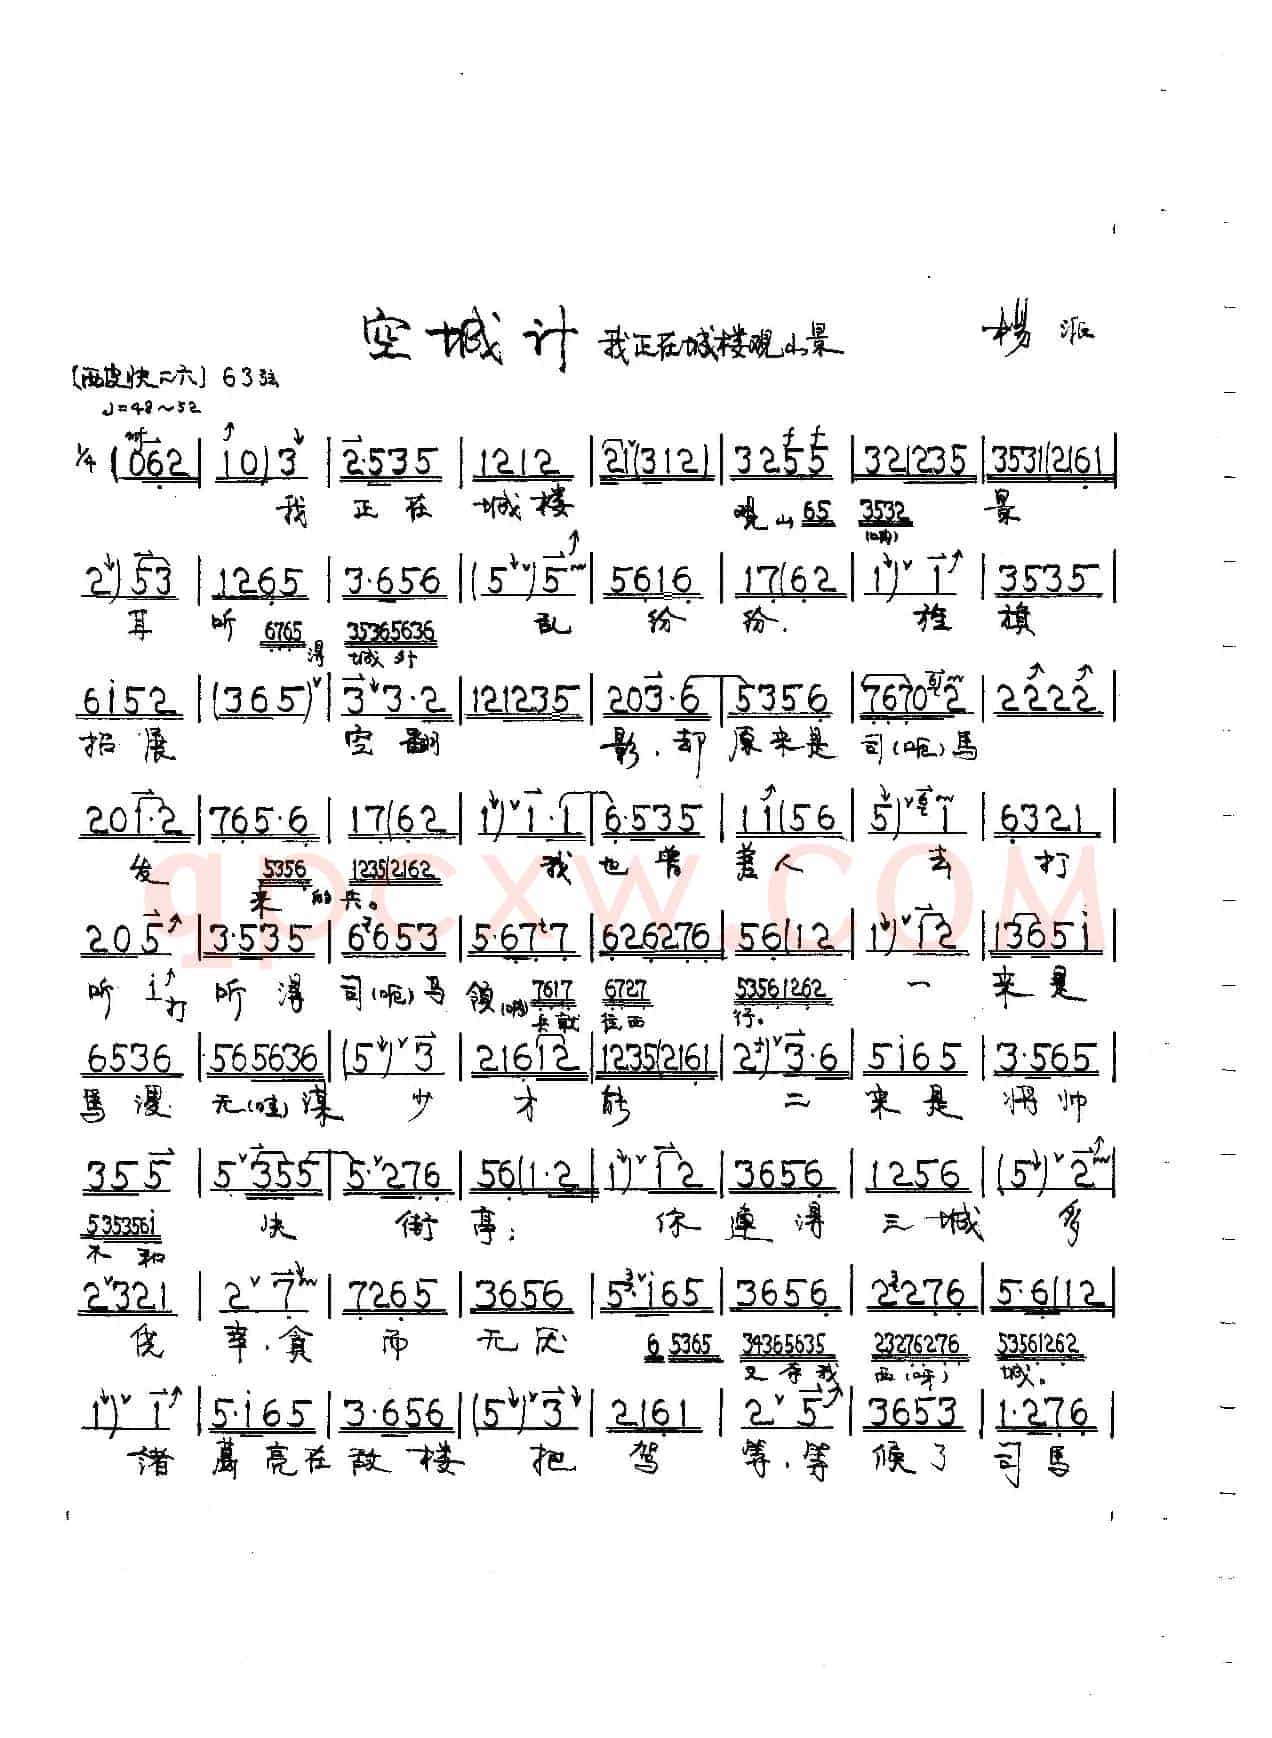 空城计 我正在城楼观山景 杨派
〔西皮快二六〕63弦
♩=48～52
1/4 (062 | 10)3 | 2·535 | 1212 | 21(312) | 3255 | 321235 | 3531(2161 |
我 正在 城楼 观山 65 3532 景
(啊)
2) 53 | 1265 | 3·656 | (5)5 | 5616 | 17(62 | 1) 1 | 3535 |
耳 听 6765 得 35365636 城外 乱 纷 纷. 旌 旗
6i52 | (365) | 33·2 | 121235 | 203·6 | 5356 | 76702 | 2222 |
招展 空翻 影.却 原来是 司(呃)馬
201·2 | 765·6 | 17(62 | 1) 1·1 | 6·535 | 11(56 | 5) 1 | 6321 |
发 5356 来 1235(2162 的兵。 我也曾差人 去打
205 | 3·535 | 6653 | 5·677 | 626276 | 56(12 | 1) 12 | 1365i |
听 i打 听得 司(呃)马 領(啊) 7617 兵就 6727 往西 53561262 行。 一 来是
6536 | 565636 | (5) 3 | 21612 | 1235(2161 | 2) 3·6 | 5i65 | 3·565 |
馬谡 无(哇)谋 少 才 能 二 来是 将帅
355 | 5355 | 5·276 | 56(1·2 | 1) 12 | 3656 | 1256 | (5) 2 |
535356i 不和 失 街亭; 你连得三城 多
2321 | 2 7 | 7265 | 3656 | 5i65 | 3656 | 2276 | 5·6(12 |
侥 幸.貪 而 无厌 6 5365 34365635 又夺我 23276276 西(呀) 53561262 城.
1) 1 | 5·i65 | 3·656 | (5) 3 | 2161 | 2 5 | 3653 | 1·276 |
诸葛亮在敌楼 把 驾 等.等 候了 司馬
qpcxw.COM